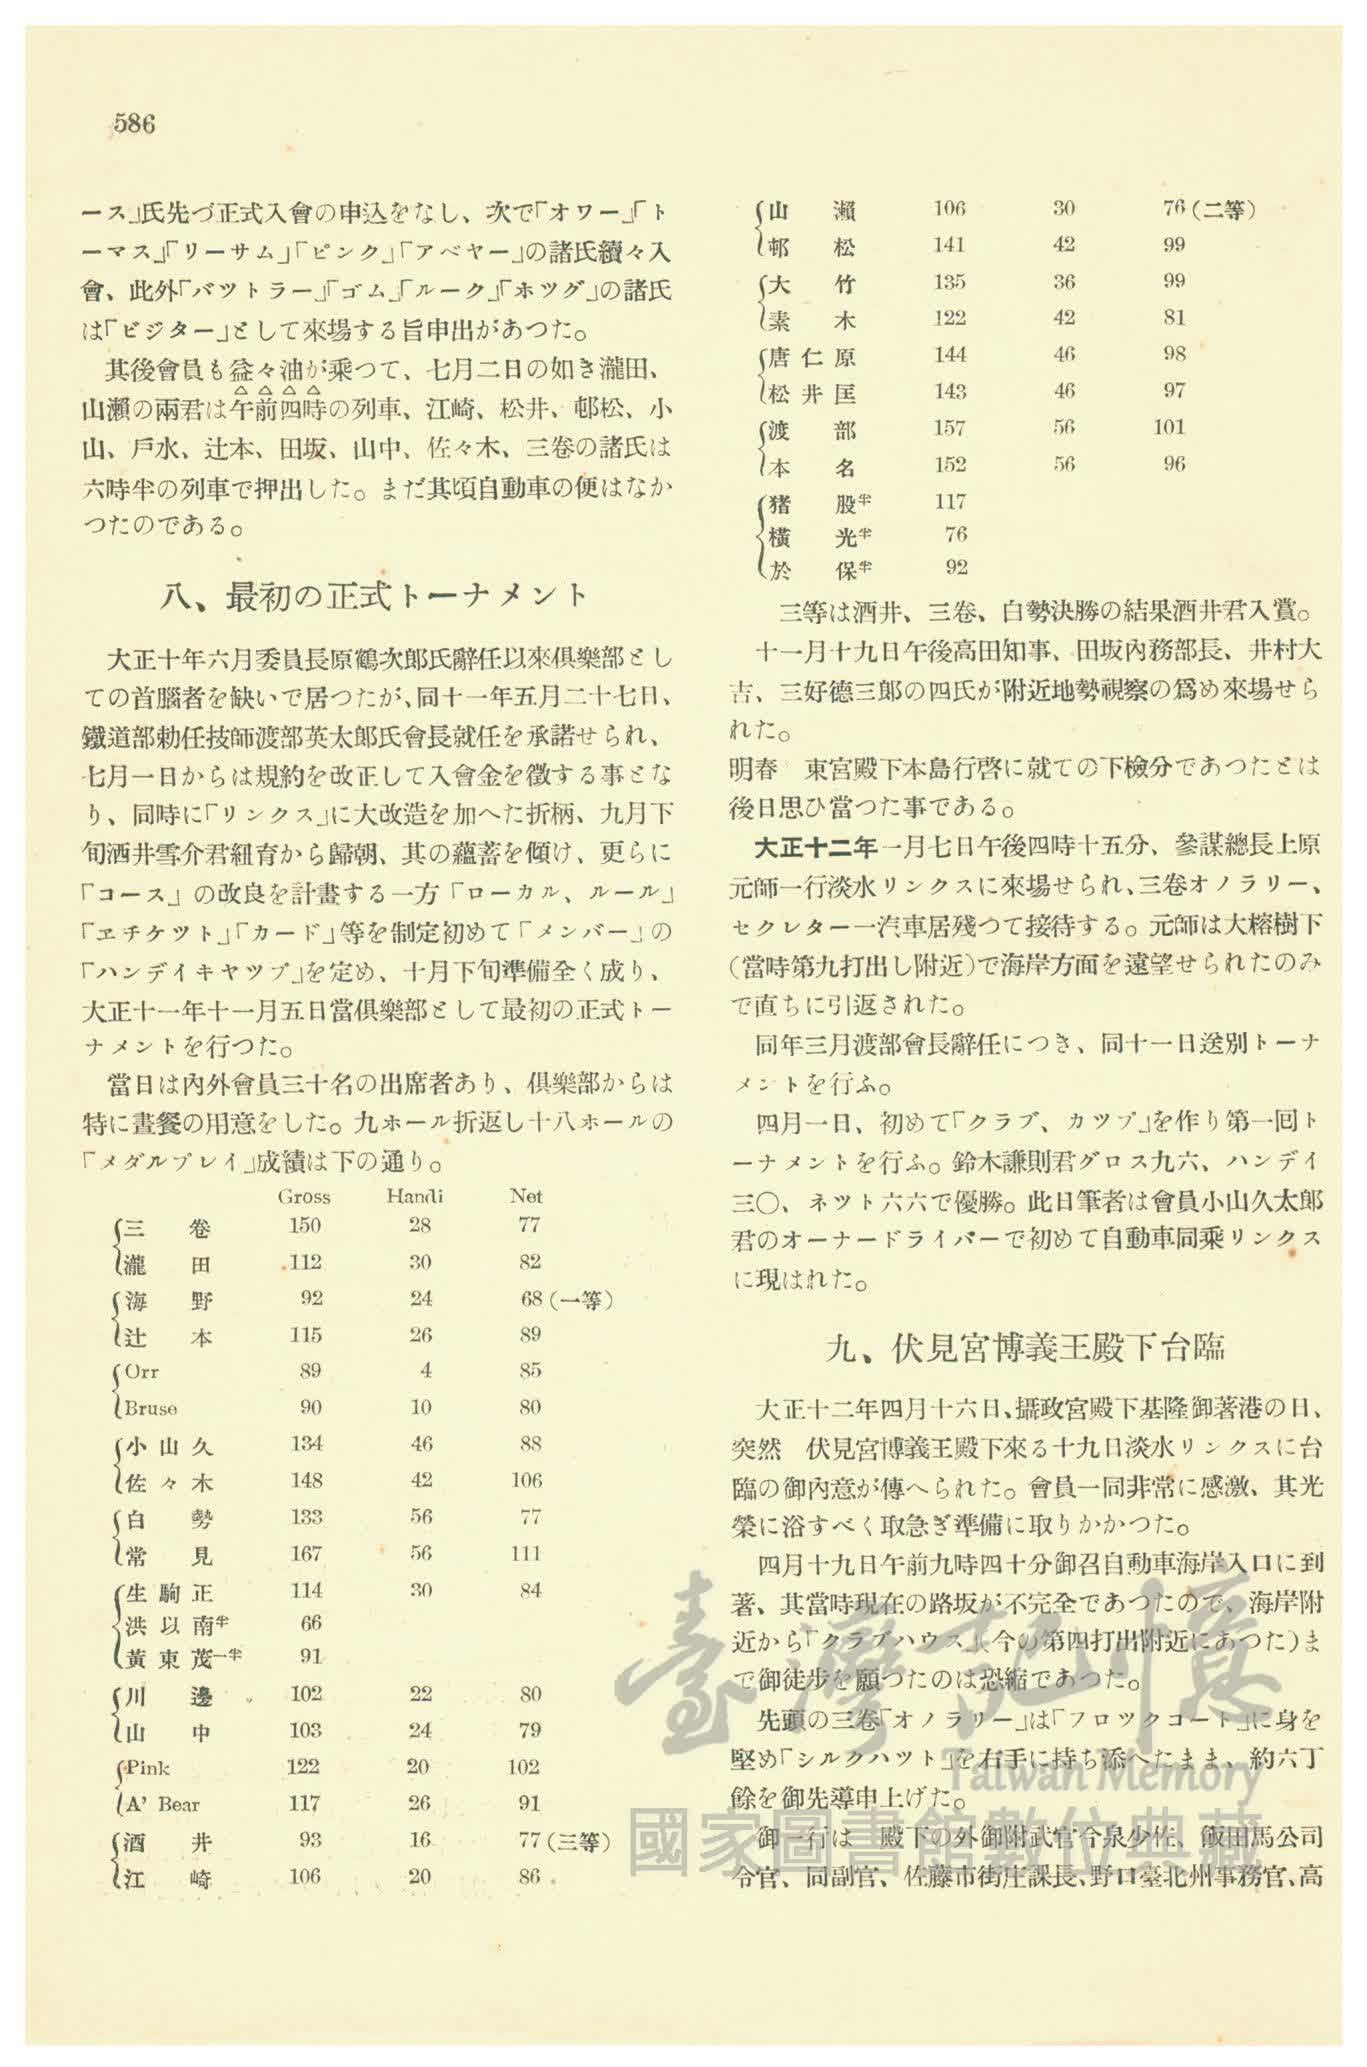 586
ース」氏先づ正式入會の申込をなし、次で「オワー」「ト
ーマス」「リーサム」「ピンク」「アベヤー」の諸氏續々入
會、此外「バツトラー」「ゴム」「ルーク」「ホツグ」の諸氏
は「ビジター」として來場する旨申出があつた。
其後會員も益々油が乘つて、七月二日の如き瀧田、
山瀨の兩君は午前四時の列車、江崎、松井、邨松、小
山、戶水、辻本、田坂、山中、佐々木、三卷の諸氏は
六時半の列車で押出した。まだ其頃自動車の便はなか
つたのである。
八、最初の正式トーナメント
大正十年六月委員長原鶴次郎氏辭任以來俱樂部とし
ての首腦者を缺いで居つたが、同十一年五月二十七日、
鐵道部勅任技師渡部英太郎氏會長就任を承諾せられ、
七月一日からは規約を改正して入會金を徵する事とな
り、同時に「リンクス」に大改造を加へた折柄、九月下
旬酒井雪介君紐育から歸朝、其の蘊蓄を傾け、更らに
「コース」の改良を計畫する一方「ローカル、ルール」
「ヱチケツト」「カード」等を制定初めて「メンバー」の
「ハンデイキヤツプ」を定め、十月下旬準備全く成り、
大正十一年十一月五日當俱樂部として最初の正式トー
ナメントを行つた。
當日は內外會員三十名の出席者あり、俱樂部からは
特に晝餐の用意をした。九ホール折返し十八ホールの
「メダルプレイ」成績は下の通り。
Gross Handi Net
三卷 150 28 77
瀧田 112 30 82
海野 92 24 68(一等)
辻本 115 26 89
Orr 89 4 85
Bruse 90 10 80
小山久 134 46 88
佐々木 148 42 106
白勢 133 56 77
常見 167 56 111
生駒正 114 30 84
洪以南半 66
黃東茂一半 91
川邊 102 22 80
山中 103 24 79
Pink 122 20 102
A' Bear 117 26 91
酒井 93 16 77(三等)
江崎 106 20 86
山瀨 106 30 76(二等)
邨松 141 42 99
大竹 135 36 99
素木 122 42 81
唐仁原 144 46 98
松井匡 143 46 97
渡部 157 56 101
本名 152 56 96
猪股半 117
橫光半 76
於保半 92
三等は酒井、三卷、白勢決勝の結果酒井君入賞。
十一月十九日午後高田知事、田坂內務部長、井村大
吉、三好德三郎の四氏が附近地勢視察の爲め來場せら
れた。
明春　東宮殿下本島行啓に就ての下檢分であつたとは
後日思ひ當つた事である。
大正十二年一月七日午後四時十五分、參謀總長上原
元師一行淡水リンクスに來場せられ、三卷オノラリー、
セクレター一汽車居殘つて接待する。元師は大榕樹下
(當時第九打出し附近)で海岸方面を遠望せられたのみ
で直ちに引返された。
同年三月渡部會長辭任につき、同十一日送別トーナ
メントを行ふ。
四月一日、初めて「クラブ、カツプ」を作り第一囘ト
ーナメントを行ふ。鈴木謙則君グロス九六、ハンデイ
三〇、ネツト六六で優勝。此日筆者は會員小山久太郎
君のオーナードライバーで初めて自動車同乘リンクス
に現はれた。
九、伏見宮博義王殿下台臨
大正十二年四月十六日、攝政宮殿下基隆御著港の日、
突然　伏見宮博義王殿下來る十九日淡水リンクスに台
臨の御內意が傳へられた。會員一同非常に感激、其光
榮に浴すべく取急ぎ準備に取りかかつた。
四月十九日午前九時四十分御召自動車海岸入口に到
著、其當時現在の路坂が不完全であつたので、海岸附
近から「クラブハウス」(今の第四打出附近にあつた)ま
で御徒步を願つたのは恐縮であつた。
先頭の三卷「オノラリー」は「フロツクコート」に身を
堅め「シルクハツト」を右手に持ち添へたまま、約六丁
餘を御先導申上げた。
御一行は　殿下の外御附武官今泉少佐、飯田馬公司
令官、同副官、佐藤市街庄課長、野口臺北州事務官、高
臺灣記憶
Taiwan Memory
國家圖書館數位典藏